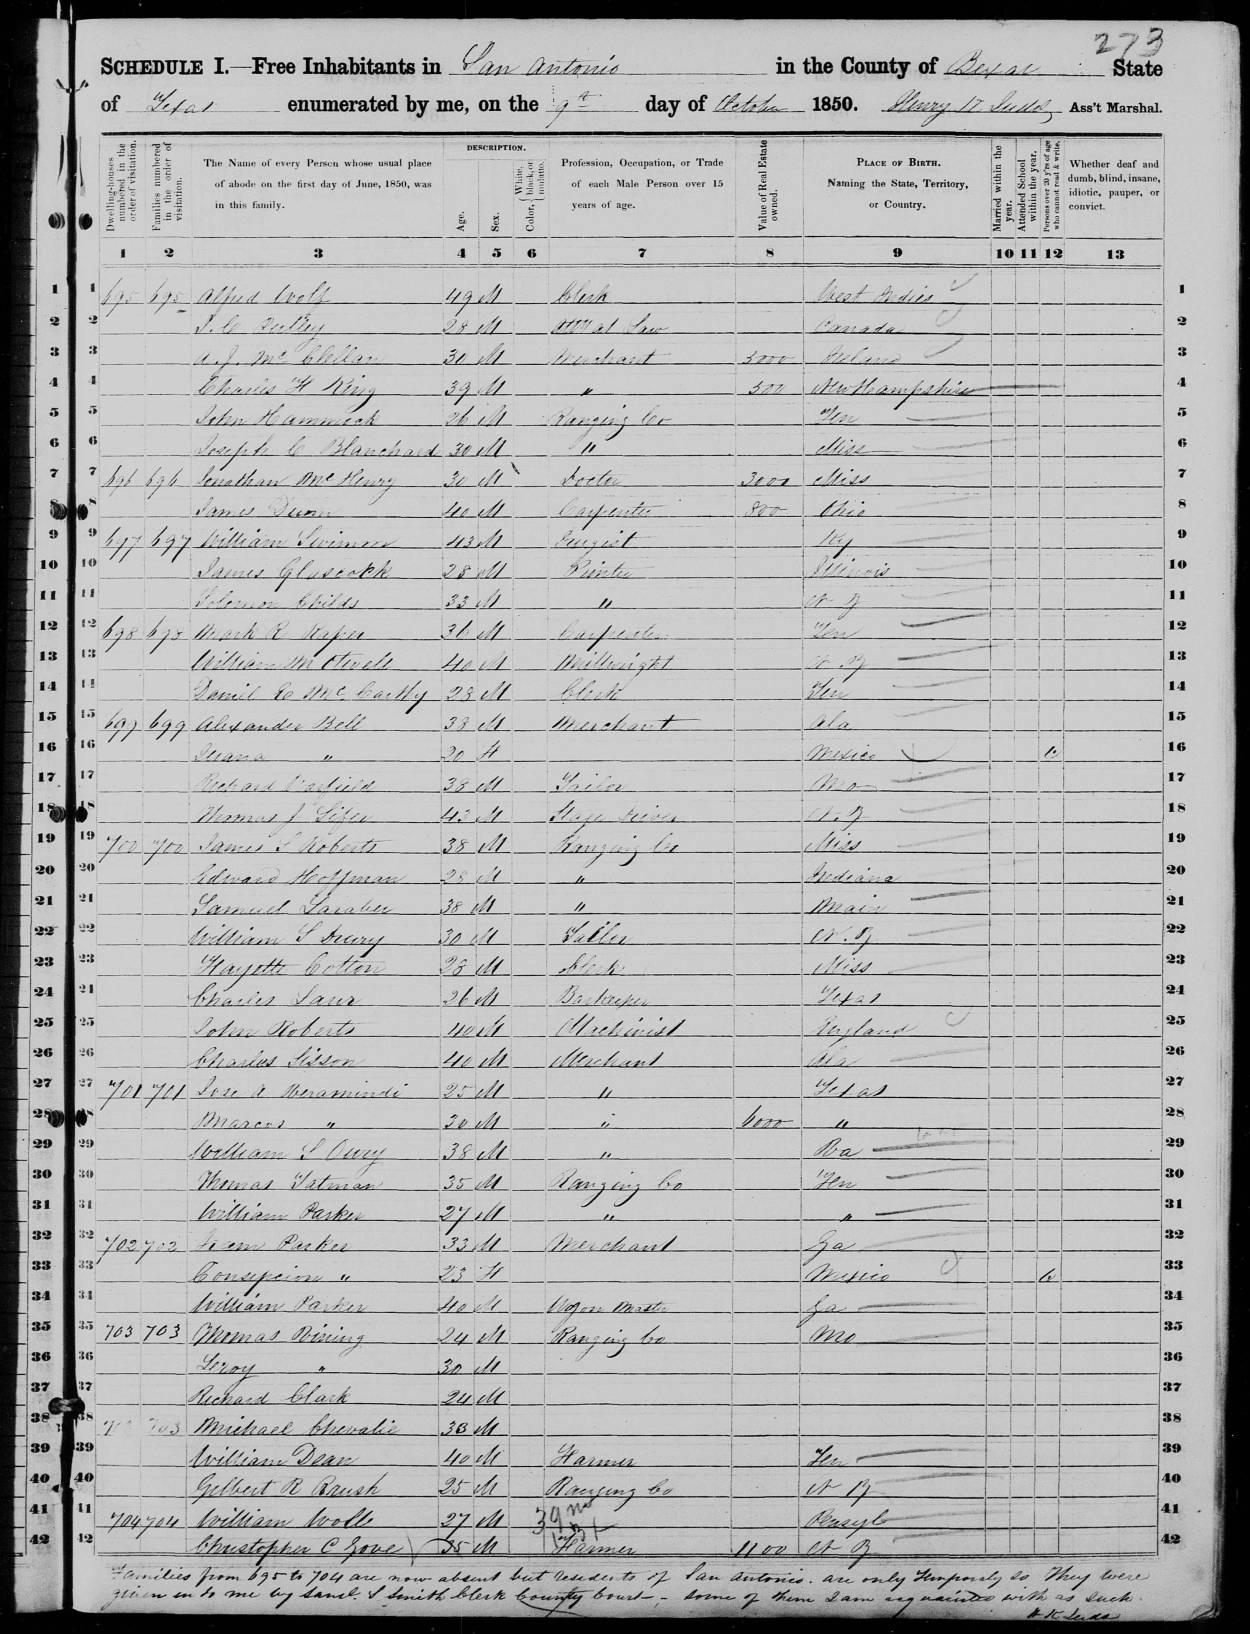 273
SCHEDULE I.—Free Inhabitants in San Antonio in the County of Bexar State
of Texas enumerated by me, on the 9th day of October 1850. Henry Ass't Marshal.
Dwelling-houses numbered in the order of visitation.
Families numbered in the order of visitation.
The Name of every Person whose usual place of abode on the first day of June, 1850, was in this family.
DESCRIPTION.
Age.
Sex.
Color, { White, black, or mulatto.
Profession, Occupation, or Trade of each Male Person over 15 years of age.
Value of Real Estate owned.
PLACE OF BIRTH. Naming the State, Territory, or Country.
Married within the year.
Attended School within the year.
Persons over 20 y'rs of age who cannot read & write.
Whether deaf and dumb, blind, insane, idiotic, pauper, or convict.
1 2 3 4 5 6 7 8 9 10 11 12 13
1 1 695 695 Alfred Wolf 49 M Clerk West Indies 1
2 2 28 M Att'y at Law Canada 2
3 3 A. J. McClellan 30 M Merchant 5000 Ireland 3
4 4 Charles H King 39 M " 500 New Hampshire 4
5 5 John Hammock 26 M Ranging Co Ten 5
6 6 Joseph C Blanchard 30 M " Miss 6
7 7 696 696 Jonathan McHenry 30 M Doctor 3000 Miss 7
8 8 James 40 M Carpenter 800 Ohio 8
9 9 697 697 William 43 M Ky 9
10 10 James Glascokk 28 M Printer Illinois 10
11 11 Solomon Childs 33 M " N Y 11
12 12 698 698 Mark R Roper 36 M Carpenter Ten 12
13 13 William M 40 M Millwright N. Y 13
14 14 Daniel E McCarthy 28 M Clerk Ten 14
15 15 699 699 Alexander Bell 38 M Merchant Ala 15
16 16 Juana " 20 F Mexico 16
17 17 Richard 38 M Tailor Mo 17
18 18 Thomas J 43 M Stage Driver N. Y 18
19 19 700 700 James S Roberts 38 M Ranging Co Miss 19
20 20 Edward Hoffman 28 M " Indiana 20
21 21 Samuel 38 M " Main 21
22 22 William S 30 M N. Y 22
23 23 Fayette Cotton 28 M Clerk Miss 23
24 24 Charles 26 M Barkeeper Texas 24
25 25 John Roberts 40 M Machinist England 25
26 26 Charles Sisson 40 M Merchant Ala 26
27 27 701 701 Jose A Veramindi 25 M " Texas 27
28 28 Marcos " 30 M " 6000 " 28
29 29 William S Oury 38 M " Va 29
30 30 Thomas Tatman 35 M Ranging Co Ten 30
31 31 William Parker 27 M " " 31
32 32 702 702 Parker 33 M Merchant Ga 32
33 33 Consepcion " 23 F Mexico 33
34 34 William Parker 40 M Wagon Master Ga 34
35 35 703 703 Thomas 24 M Ranging Co Mo 35
36 36 Leroy " 30 M 36
37 37 Richard Clark 24 M 37
38 38 703 Michael Chevalie 33 M 38
39 39 William Dean 40 M Farmer Ten 39
40 40 Gilbert R Brush 25 M Ranging Co N Y 40
41 41 704 704 William Wolls 27 M 41
42 42 Christopher C Gove 35 M Farmer 1100 N Y 42
Families from 695 to 704 are now absent but residents of San Antonio. are only temporarily so They were
given in to me by Saml. S Smith Clerk County Court - some of them I am acquainted with as such.